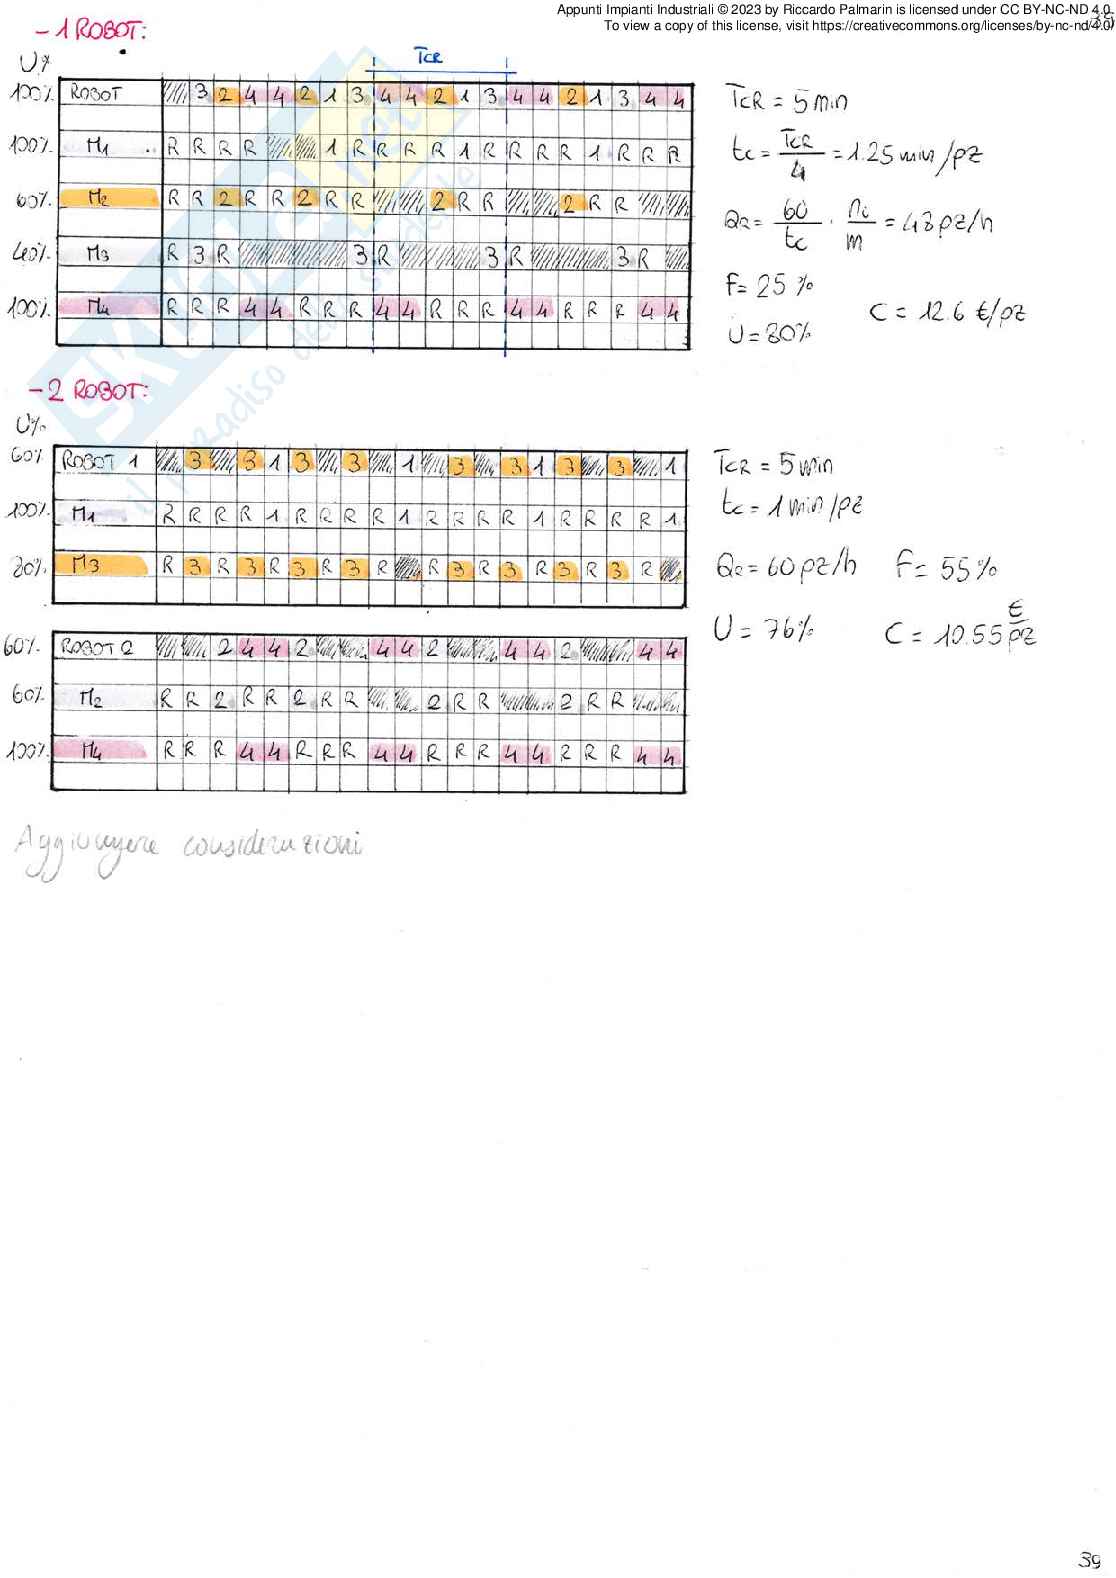 Appunti Impianti Industriali © 2023 by Riccardo Palmarin is licensed under CC BY-NC-ND 4.0.
To view a copy of this license, visit https://creativecommons.org/licenses/by-nc-nd/4.0/
- 1 ROBOT:
U%
TCR
100% ROBOT 3 2 4 4 2 1 3 4 4 2 1 3 4 4 2 1 3 4 4
100% M1 R R R R 1 R R R R 1 R R R R 1 R R R
60% M2 R R 2 R R 2 R R 2 R R 2 R R
40% M3 R 3 R 3 R 3 R 3 R
100% M4 R R R 4 4 R R R 4 4 R R R 4 4 R R R 4 4
TCR = 5 min
tc = TCR / 4 = 1.25 min/pz
QR = 60 / tc · ni / m = 48 pz/h
F = 25 %
U = 80%
C = 12.6 €/pz
- 2 ROBOT:
U%
60% ROBOT 1 3 3 1 3 3 1 3 3 1 3 3 1
100% M1 R R R R 1 R R R R 1 R R R R 1 R R R R 1
80% M3 R 3 R 3 R 3 R 3 R R 3 R 3 R 3 R 3 R
TCR = 5 min
tc = 1 min/pz
QR = 60 pz/h F = 55%
U = 76% C = 10.55 €/pz
60% ROBOT 2 2 4 4 2 4 4 2 4 4 2 4 4
60% M2 R R 2 R R 2 R R 2 R R 2 R R
100% M4 R R R 4 4 R R R 4 4 R R R 4 4 R R R 4 4
Aggiungere considerazioni
39